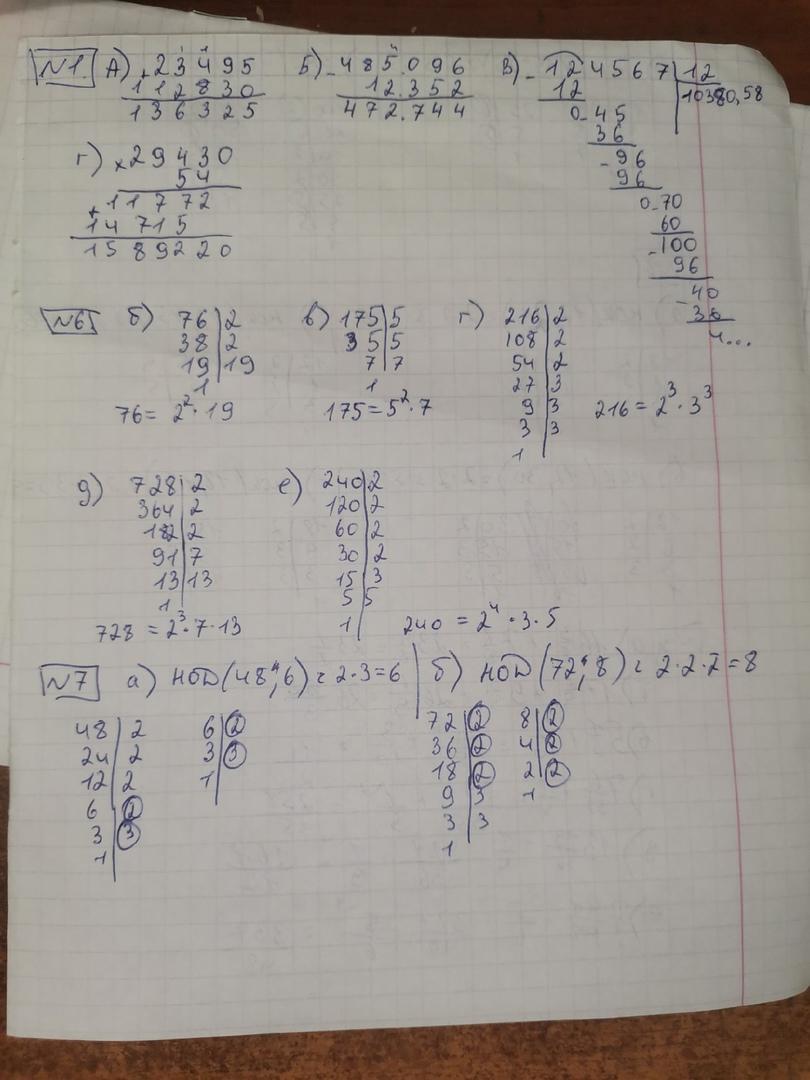 №1. А) +23495
112830
136325
Б) -485.096
12.352
472.744
В) -124567 | 12
12 | 10380,58
0-45
36
-96
96
0-70
60
-100
96
-40
36
4...
г) ×29430
54
+11772
14715
1589220
№6 б) 76 | 2
38 | 2
19 | 19
1
76 = 2² · 19
в) 175 | 5
35 | 5
7 | 7
1
175 = 5² · 7
г) 216 | 2
108 | 2
54 | 2
27 | 3
9 | 3
3 | 3
1
216 = 2³ · 3³
д) 728 | 2
364 | 2
182 | 2
91 | 7
13 | 13
1
728 = 2³ · 7 · 13
е) 240 | 2
120 | 2
60 | 2
30 | 2
15 | 3
5 | 5
1
240 = 2⁴ · 3 · 5
№7 а) НОД(48; 6) = 2·3=6
48 | 2
24 | 2
12 | 2
6 | 2
3 | 3
1
6 | 2
3 | 3
1
б) НОД(72; 8) = 2·2·2=8
72 | 2
36 | 2
18 | 2
9 | 3
3 | 3
1
8 | 2
4 | 2
2 | 2
1